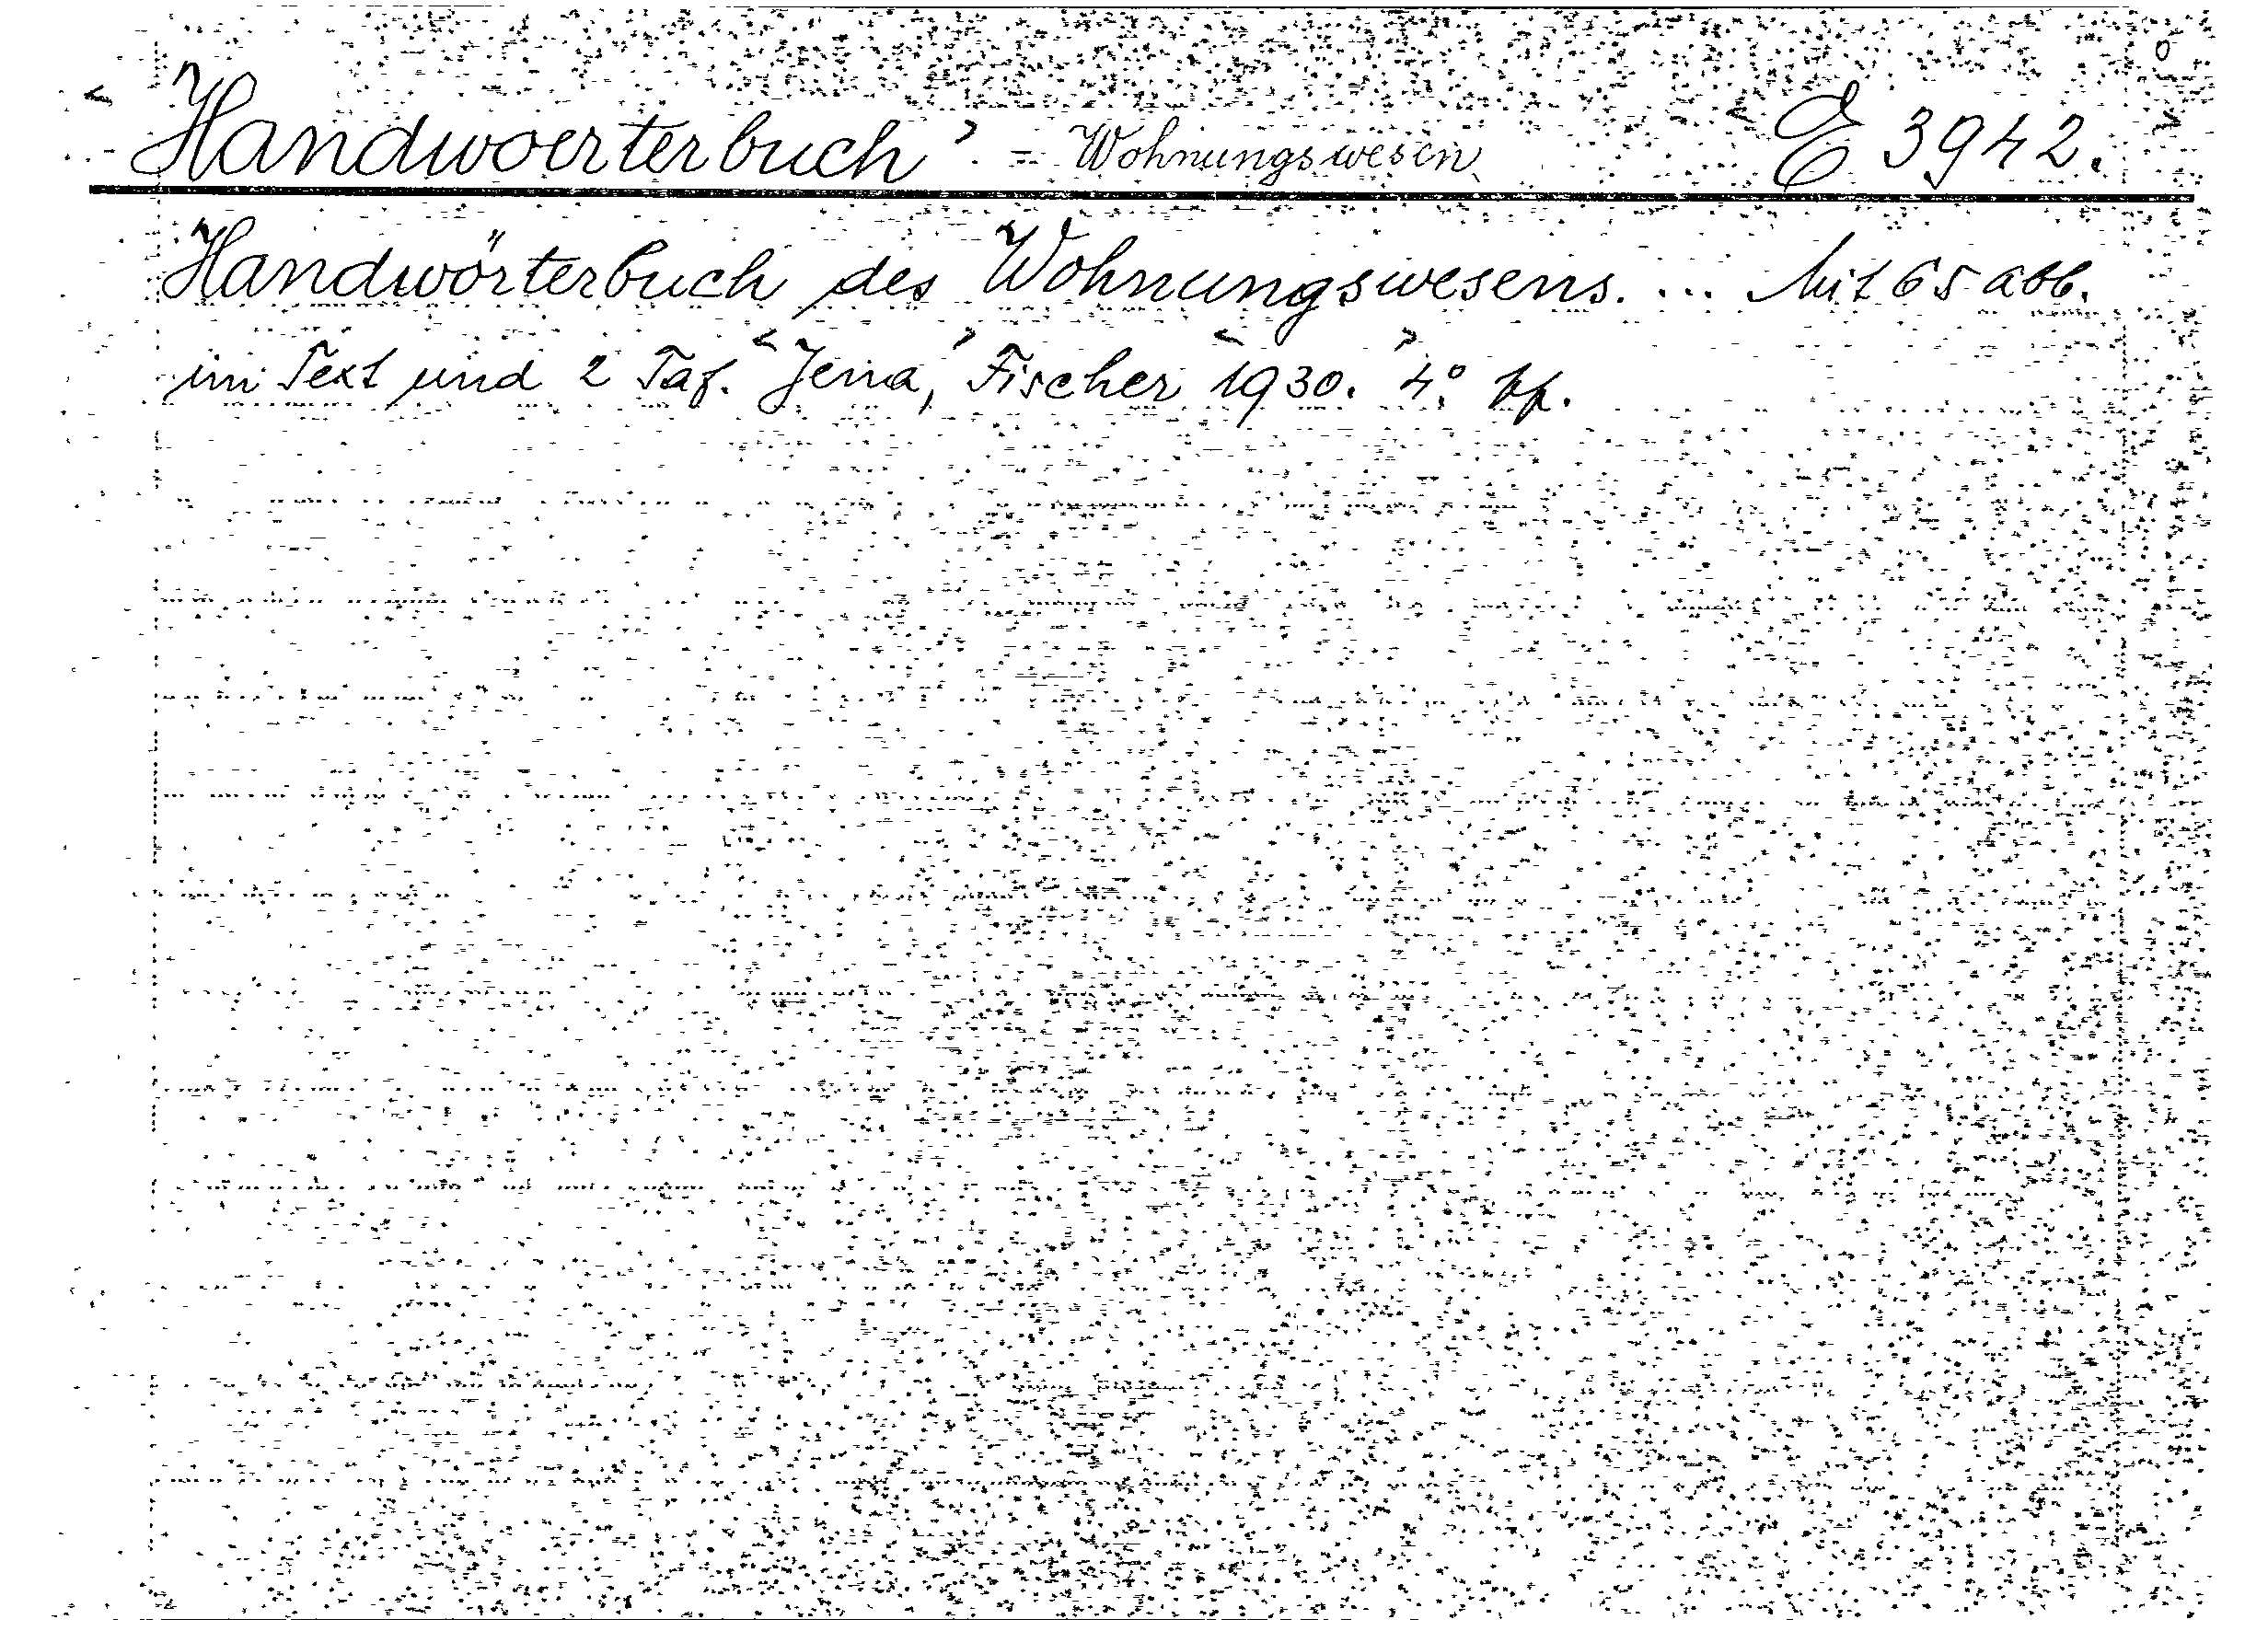 < Handwoerterbuch > = Wohnungswesen < E 3942. >
Handwörterbuch des Wohnungswesens. ... Mit 65 Abb.
im Text und 2 Taf. < Jena, > Fischer < 1930. > 4°.